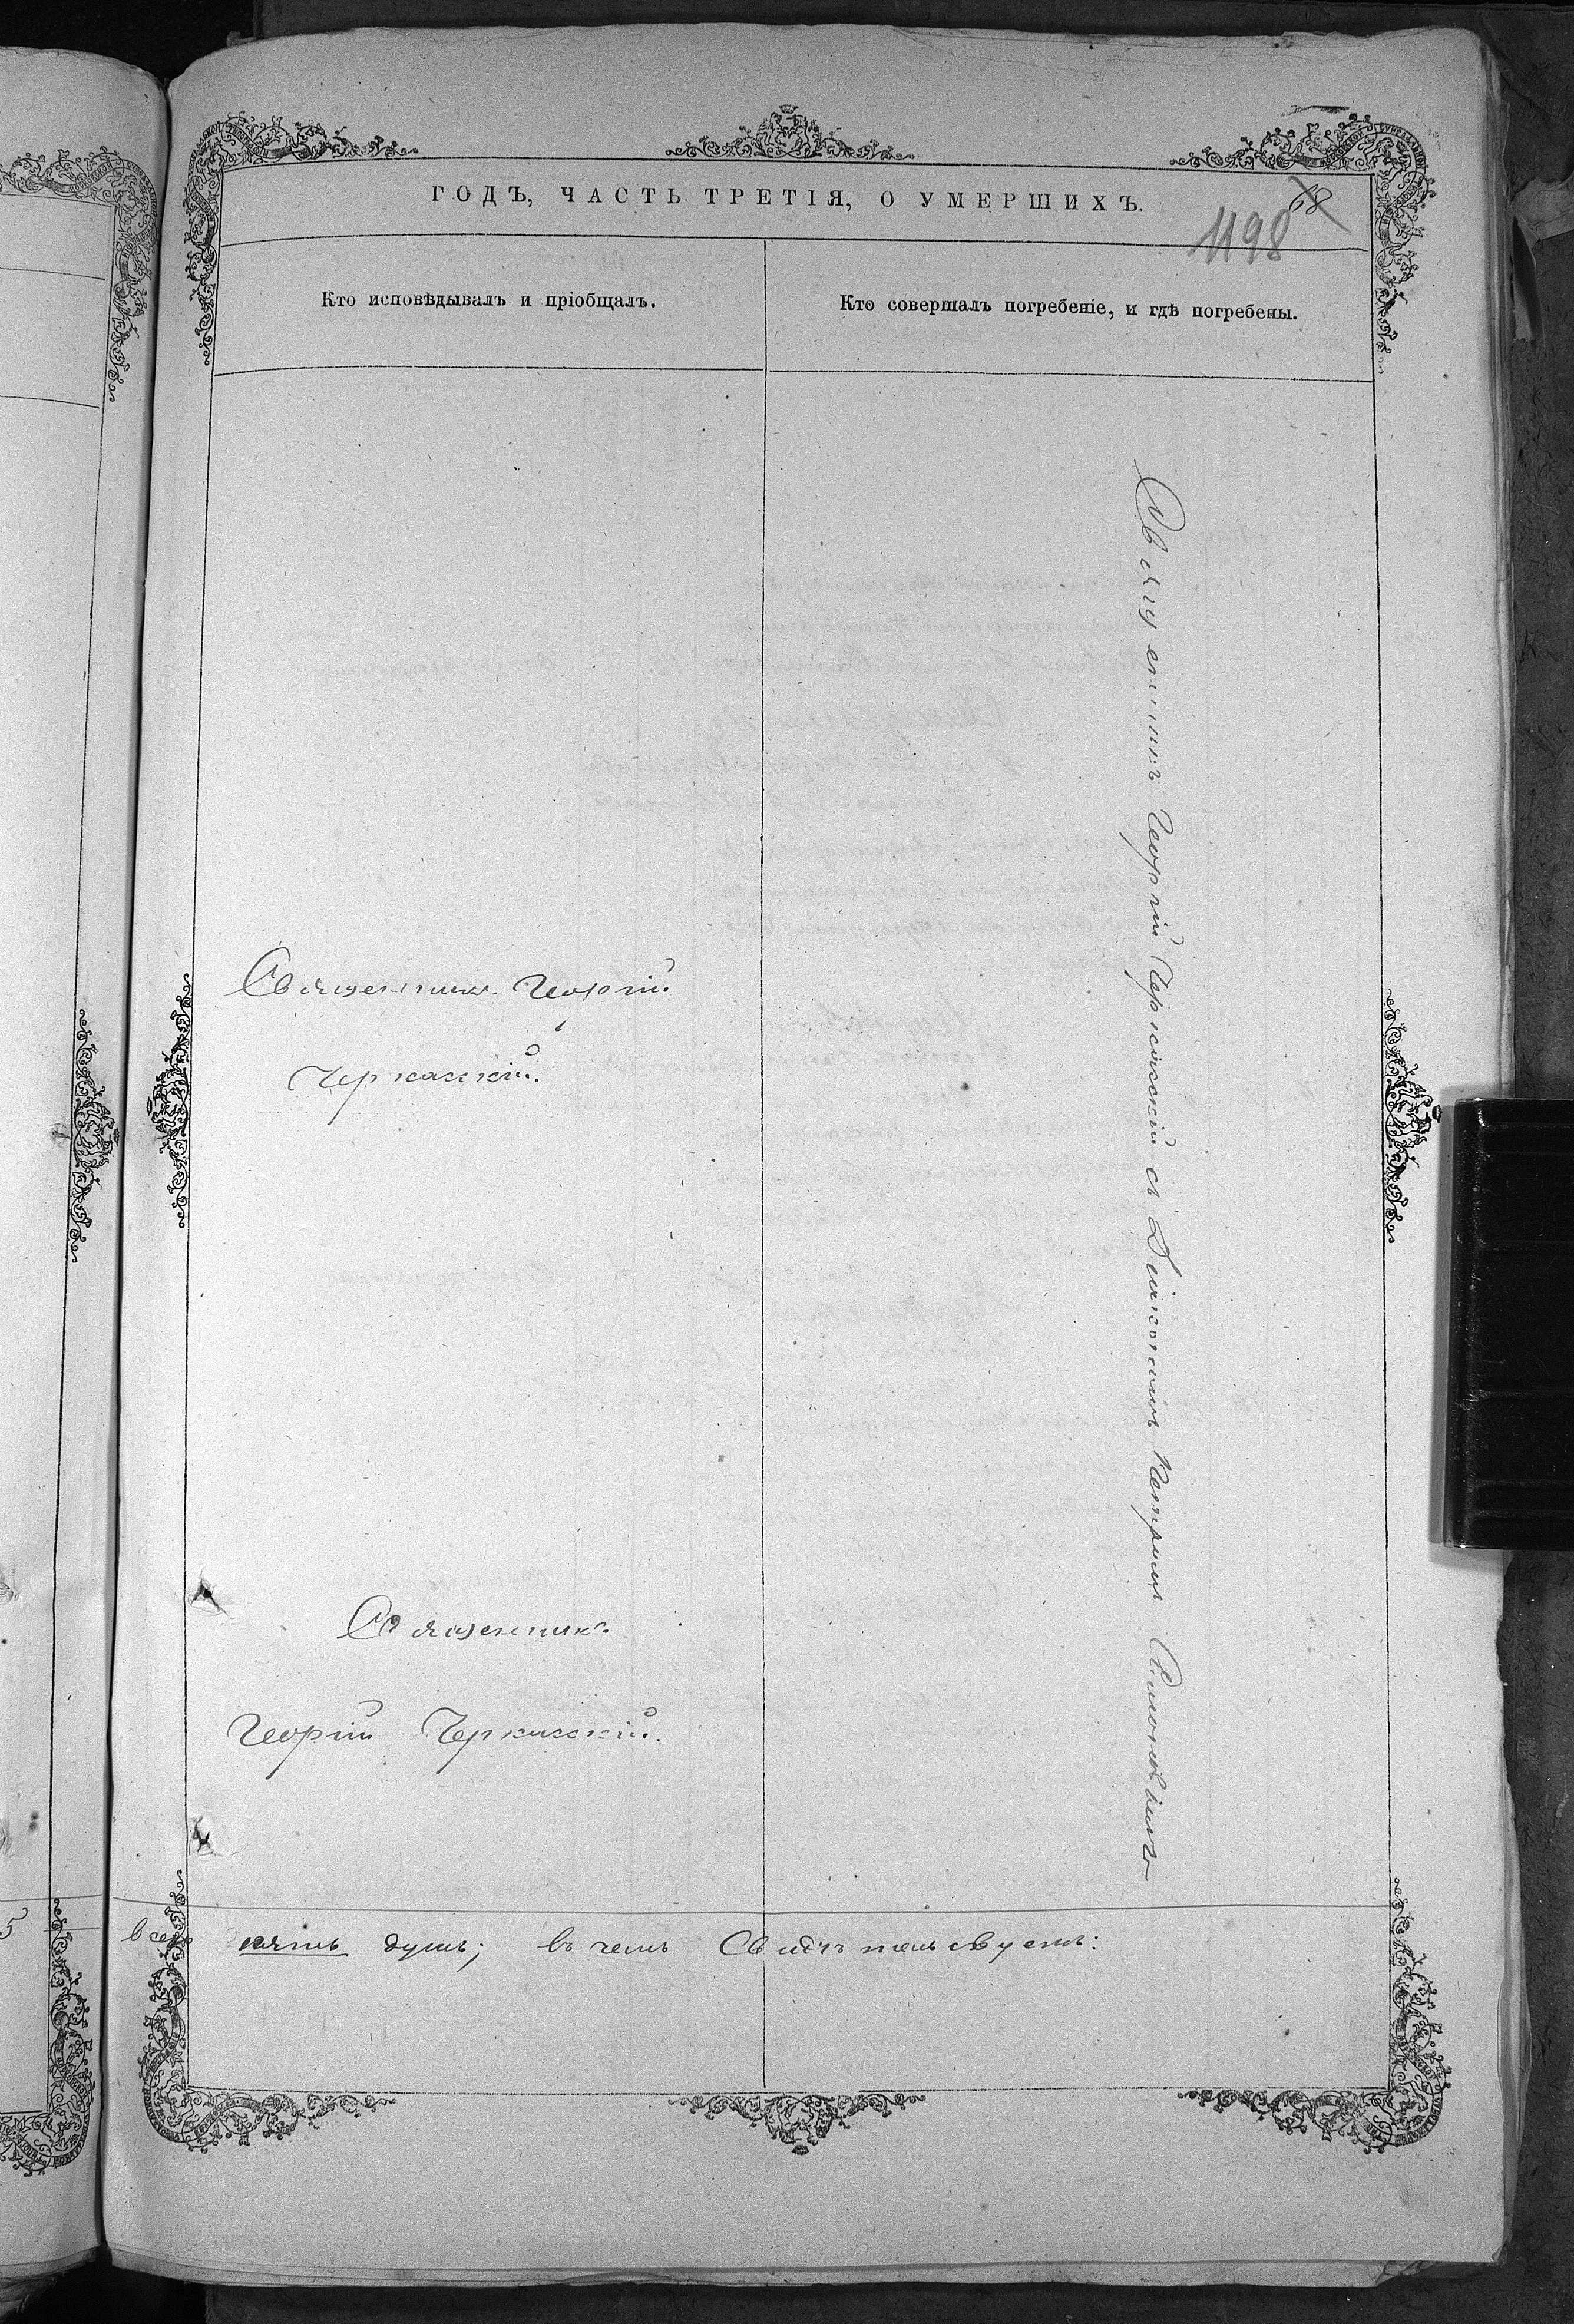 ГОДЪ, ЧАСТЬ ТРЕТІЯ, О УМЕРШИХЪ.
68
1198
Кто исповѣдывалъ и пріобщалъ.
Кто совершалъ погребеніе, и гдѣ погребены.
Священникъ Георгій
Черкасскій.
Священникъ
Георгій Черкасскій.
Священникъ Георгій Черкасскій съ Діакономъ Петромъ
5
всего пять душъ; въ чемъ Свидѣтельствуемъ: